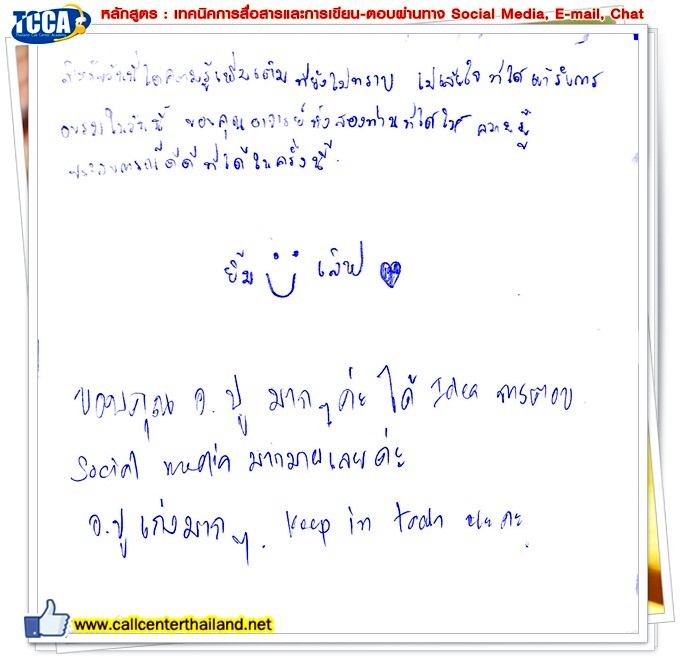 TCCA
Thailand Call Center Academy
หลักสูตร : เทคนิคการสื่อสารและการเขียน-ตอบผ่านทาง Social Media, E-mail, Chat
ได้ความรู้เพิ่มเติม ที่ยังไม่ทราบ ไม่เสียใจ ที่ได้เข้ารับการ
อบรมในวันนี้ ขอบคุณ อาจารย์ ทั้งสองท่าน ที่ได้ให้ ความรู้
ประสบการณ์ดีดี ที่ได้ในครั้งนี้.
ยิ้ม เลิฟ
ขอบคุณ อ. ปู มากๆ ค่ะ ได้ Idea การตอบ
Social media มากมายเลยค่ะ
อ.ปู เก่งมากๆ. Keep in touch นะคะ
www.callcenterthailand.net